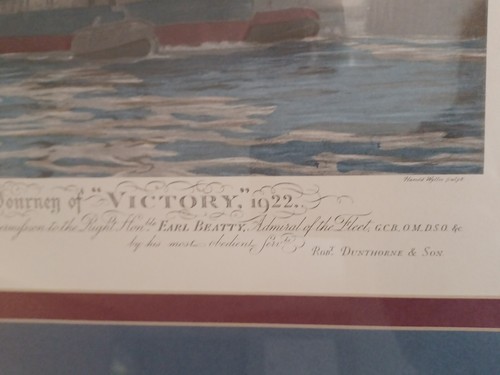 Harold Wyllie sculpt
Journey of "VICTORY," 1922.
permission to the Right Honble. EARL BEATTY, Admiral of the Fleet, G.C.B. O.M. D.S.O. &c.
by his most obedient servts.
ROBT. DUNTHORNE & SON